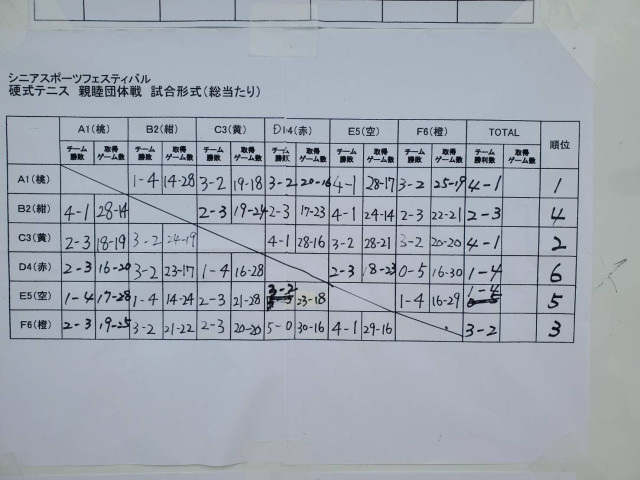 シニアスポーツフェスティバル
硬式テニス 親睦団体戦 試合形式(総当たり)
A1(桃) B2(紺) C3(黄) D4(赤) E5(空) F6(橙) TOTAL 順位
チーム勝敗 取得ゲーム数 チーム勝敗 取得ゲーム数 チーム勝敗 取得ゲーム数 チーム勝敗 取得ゲーム数 チーム勝敗 取得ゲーム数 チーム勝敗 取得ゲーム数 チーム勝利数 取得ゲーム数
A1(桃) 1-4 14-28 3-2 19-18 3-2 20-16 4-1 28-17 3-2 25-19 4-1 1
B2(紺) 4-1 28-14 2-3 19-24 2-3 17-23 4-1 24-14 2-3 22-21 2-3 4
C3(黄) 2-3 18-19 3-2 24-19 4-1 28-16 3-2 28-21 3-2 20-20 4-1 2
D4(赤) 2-3 16-20 3-2 23-17 1-4 16-28 2-3 18-23 0-5 16-30 1-4 6
E5(空) 1-4 17-28 1-4 14-24 2-3 21-28 3-2 23-18 1-4 16-29 1-4 5
F6(橙) 2-3 19-25 3-2 21-22 2-3 20-20 5-0 30-16 4-1 29-16 3-2 3